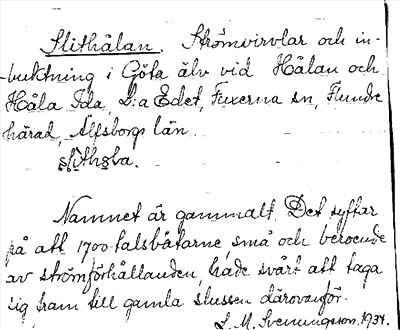 Slithålan. Strömvirvlar och in-
buktning i Göta älv vid Hålan och
Håla Ida, L:a Edet, Fuxerna sn, Flundre
härad, Älfsborgs län.
Namnet är gammalt. Det syftar
på att 1700-talsbåtarne små och beroende
av strömförhållanden, hade svårt att taga
sig fram till gamla slussen därovanför.
L. M. Svenungsson. 1934.